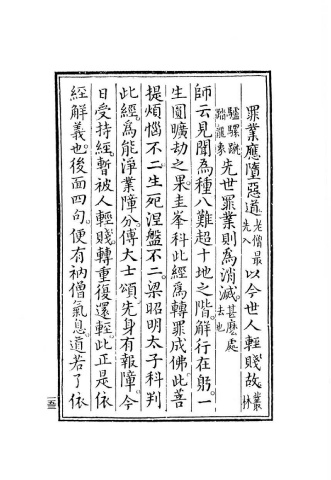 罪業應墮惡道。老僧最先入以今世人輕賤故。叢林
驢騾蹴踏龍象先世罪業則為消滅。甚麼處去也
師云見聞為種八難超十地之階。解行在躬。一
生圓曠劫之果。圭峯科此經為轉罪成佛。此菩
提煩惱不二。生死涅盤不二。梁昭明太子科判
此經。為能淨業障分。傅大士頌先身有報障。今
日受持經。暫被人輕賤。轉重復還輕。此正是依
經解義也。後面四句。便有衲僧氣息。道若了依
一五